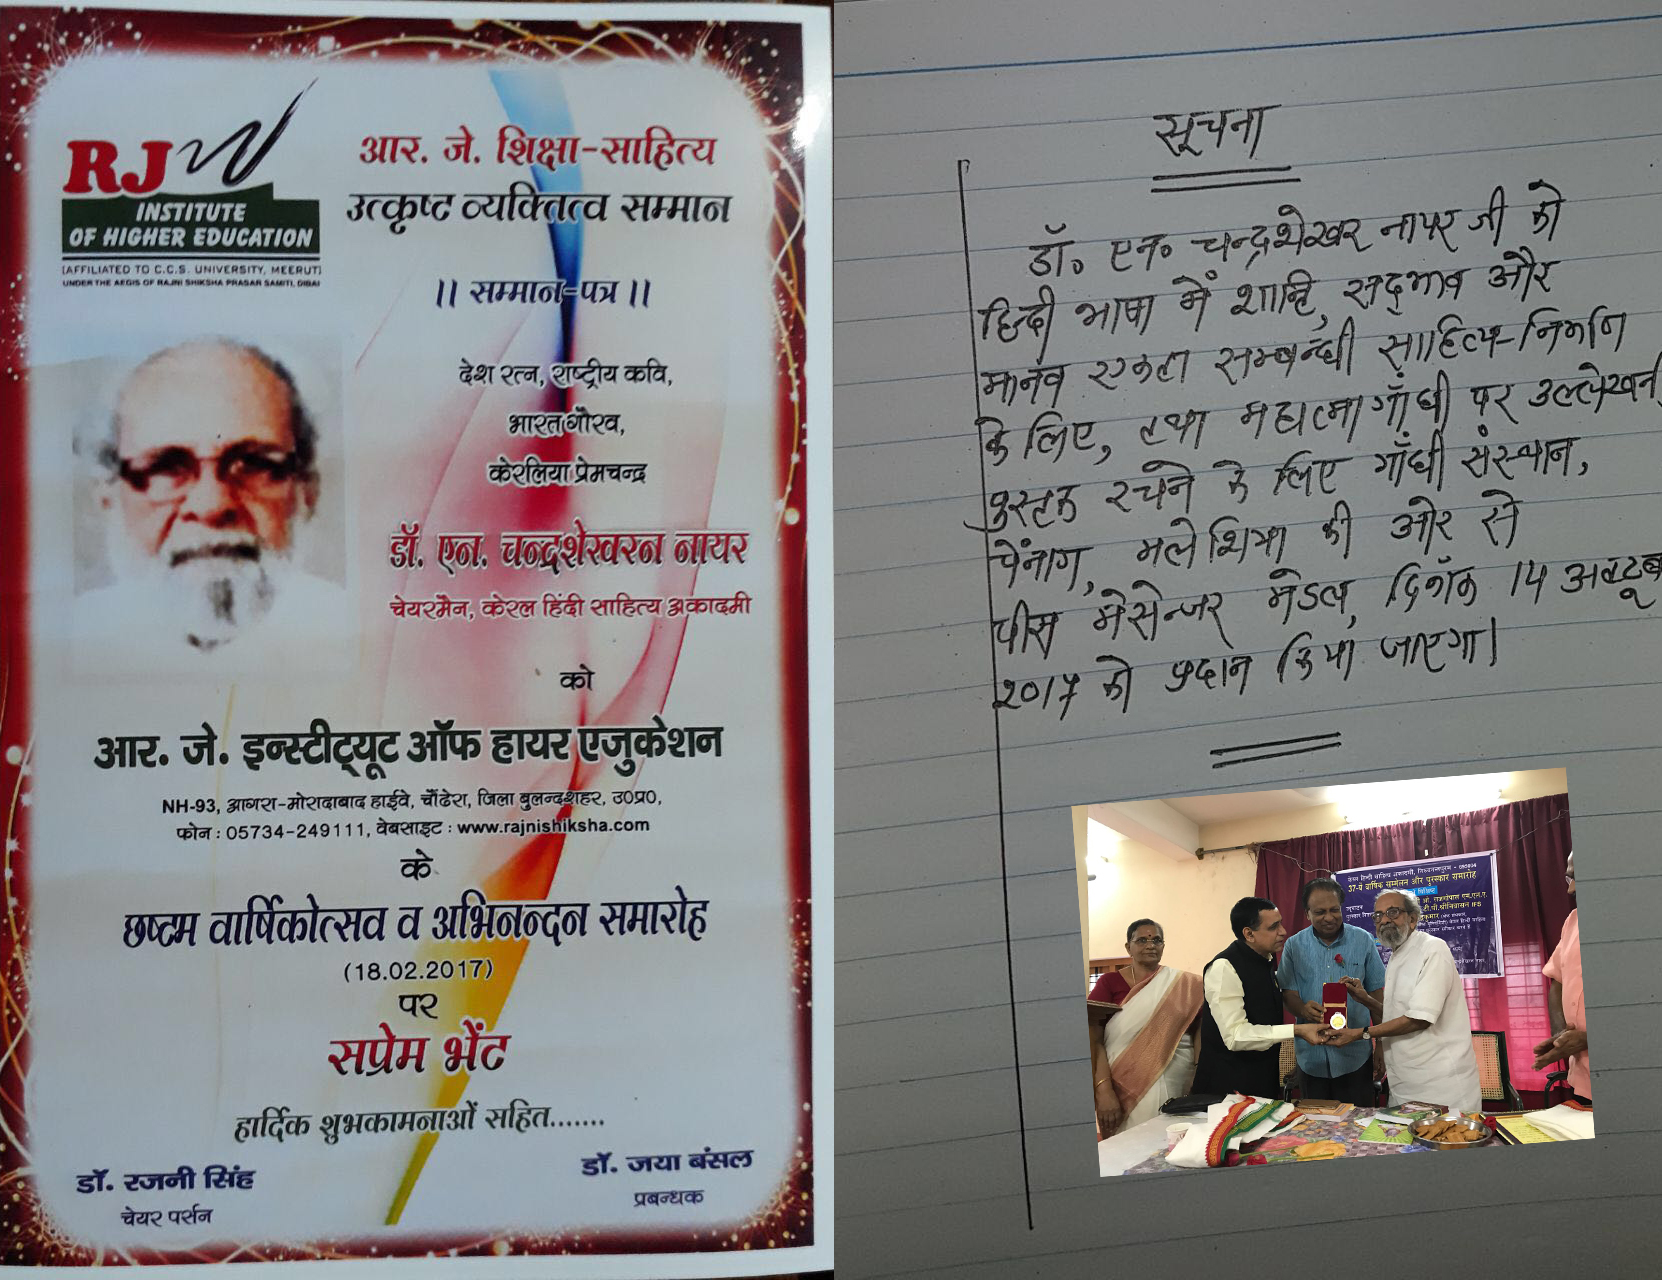 RJ
INSTITUTE
OF HIGHER EDUCATION
(AFFILIATED TO C.C.S. UNIVERSITY, MEERUT)
UNDER THE AEGIS OF RAJNI SHIKSHA PRASAR SAMITI, DIBAI
आर. जे. शिक्षा-साहित्य
उत्कृष्ट व्यक्तित्व सम्मान
।। सम्मान-पत्र ।।
देश रत्न, राष्ट्रीय कवि,
भारत गौरव,
केरलिया प्रेमचन्द्र
डॉ. एन. चन्द्रशेखरन नायर
चेयरमैन, केरल हिंदी साहित्य अकादमी
को
आर. जे. इन्स्टीट्यूट ऑफ हायर एजुकेशन
NH-93, आगरा-मोरादाबाद हाईवे, चौंढेरा, जिला बुलन्दशहर, उ0प्र0,
फोन : 05734-249111, वेबसाइट : www.rajnishiksha.com
के
छष्टम वार्षिकोत्सव व अभिनन्दन समारोह
(18.02.2017)
पर
सप्रेम भेंट
हार्दिक शुभकामनाओं सहित.......
डॉ. रजनी सिंह
चेयर पर्सन
डॉ. जया बंसल
प्रबन्धक
सूचना
डॉ० एन० चन्द्रशेखर नायर जी को
हिन्दी भाषा में शान्ति, सद्भाव और
मानव एकता सम्बन्धी साहित्य-निर्माण
के लिए, तथा महात्मा गाँधी पर उल्लेखनी
पुस्तक रचने के लिए गाँधी संस्थान,
पेंनाग, मलेशिया की ओर से
पीस मेसेन्जर मेडल, दिनाँक 14 अक्टूब
२०१७ को प्रदान किया जाएगा।
केरल हिन्दी साहित्य अकादमी, तिरुवनन्तपुरम - 695004
37-वें वार्षिक सम्मेलन और पुरस्कार समारोह